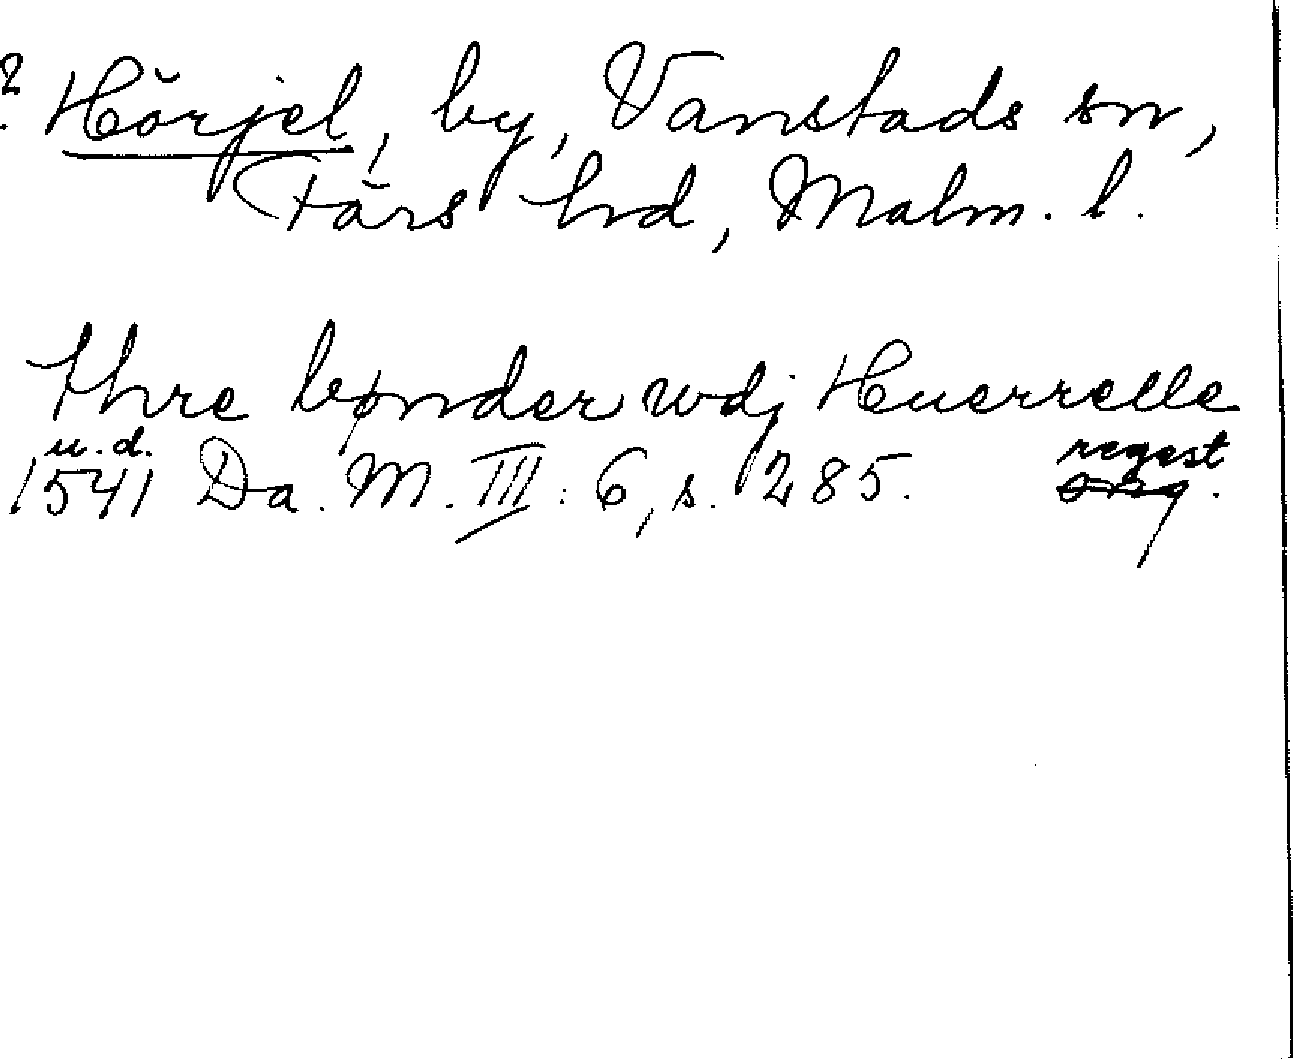 Hörjel, by, Vanstads sn,
Färs hd, Malm. l.
thre bønder wdj Huerrelle
u. d.
1541 Da. M. III: 6, s. 285.
regest